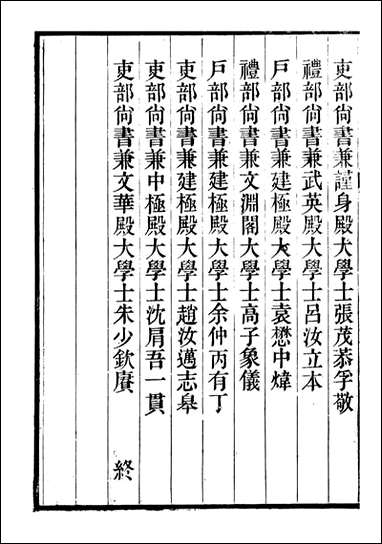 吏部尙書兼謹身殿大學士張茂恭孚敬
禮部尙書兼武英殿大學士呂汝立本
戶部尙書兼建極殿大學士袁懋中煒
禮部尙書兼文淵閣大學士高子象儀
戶部尙書兼建極殿大學士余仲丙有丁
吏部尙書兼建極殿大學士趙汝邁志皋
吏部尙書兼中極殿大學士沈肩吾一貫
吏部尙書兼文華殿大學士朱少欽賡 終